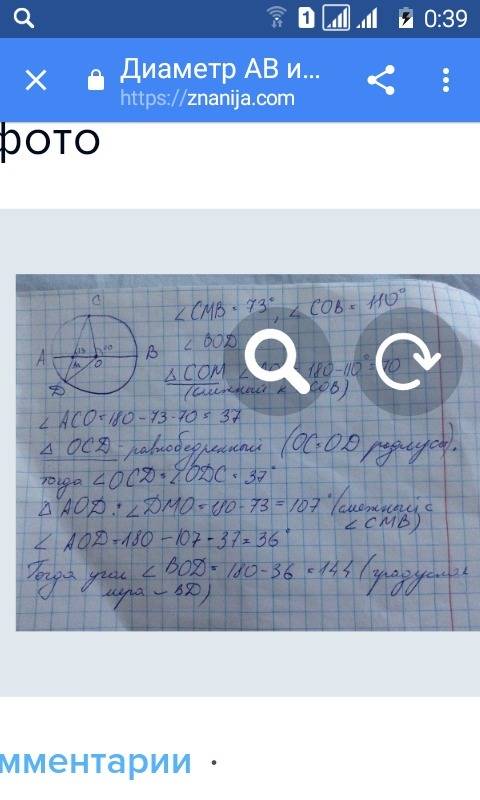 1
0:39
Диаметр АВ и...
https://znanija.com
фото
C
A
O
B
M
D
∠CMB = 73°, ∠COB = 110°
∠BOD
△ COM 180-110°=70
(смежный к COB)
∠ACO=180-73-70=37
△ OCD-равнобедренный (OC=OD радиусы).
тогда ∠OCD=∠ODC=37°
△ AOD: ∠DMO=180-73=107° (смежный с
∠CMB)
∠ AOD=180-107-37=36°
Тогда угол ∠BOD=180-36=144 (градусная
мера ⌣BD)
мментарии ·